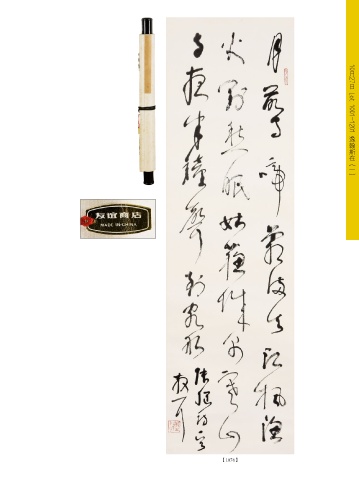 月落烏啼霜滿天江楓漁
火對愁眠姑蘇城外寒山
寺夜半鐘聲到客船
張繼詩
友誼商店
MADE IN CHINA